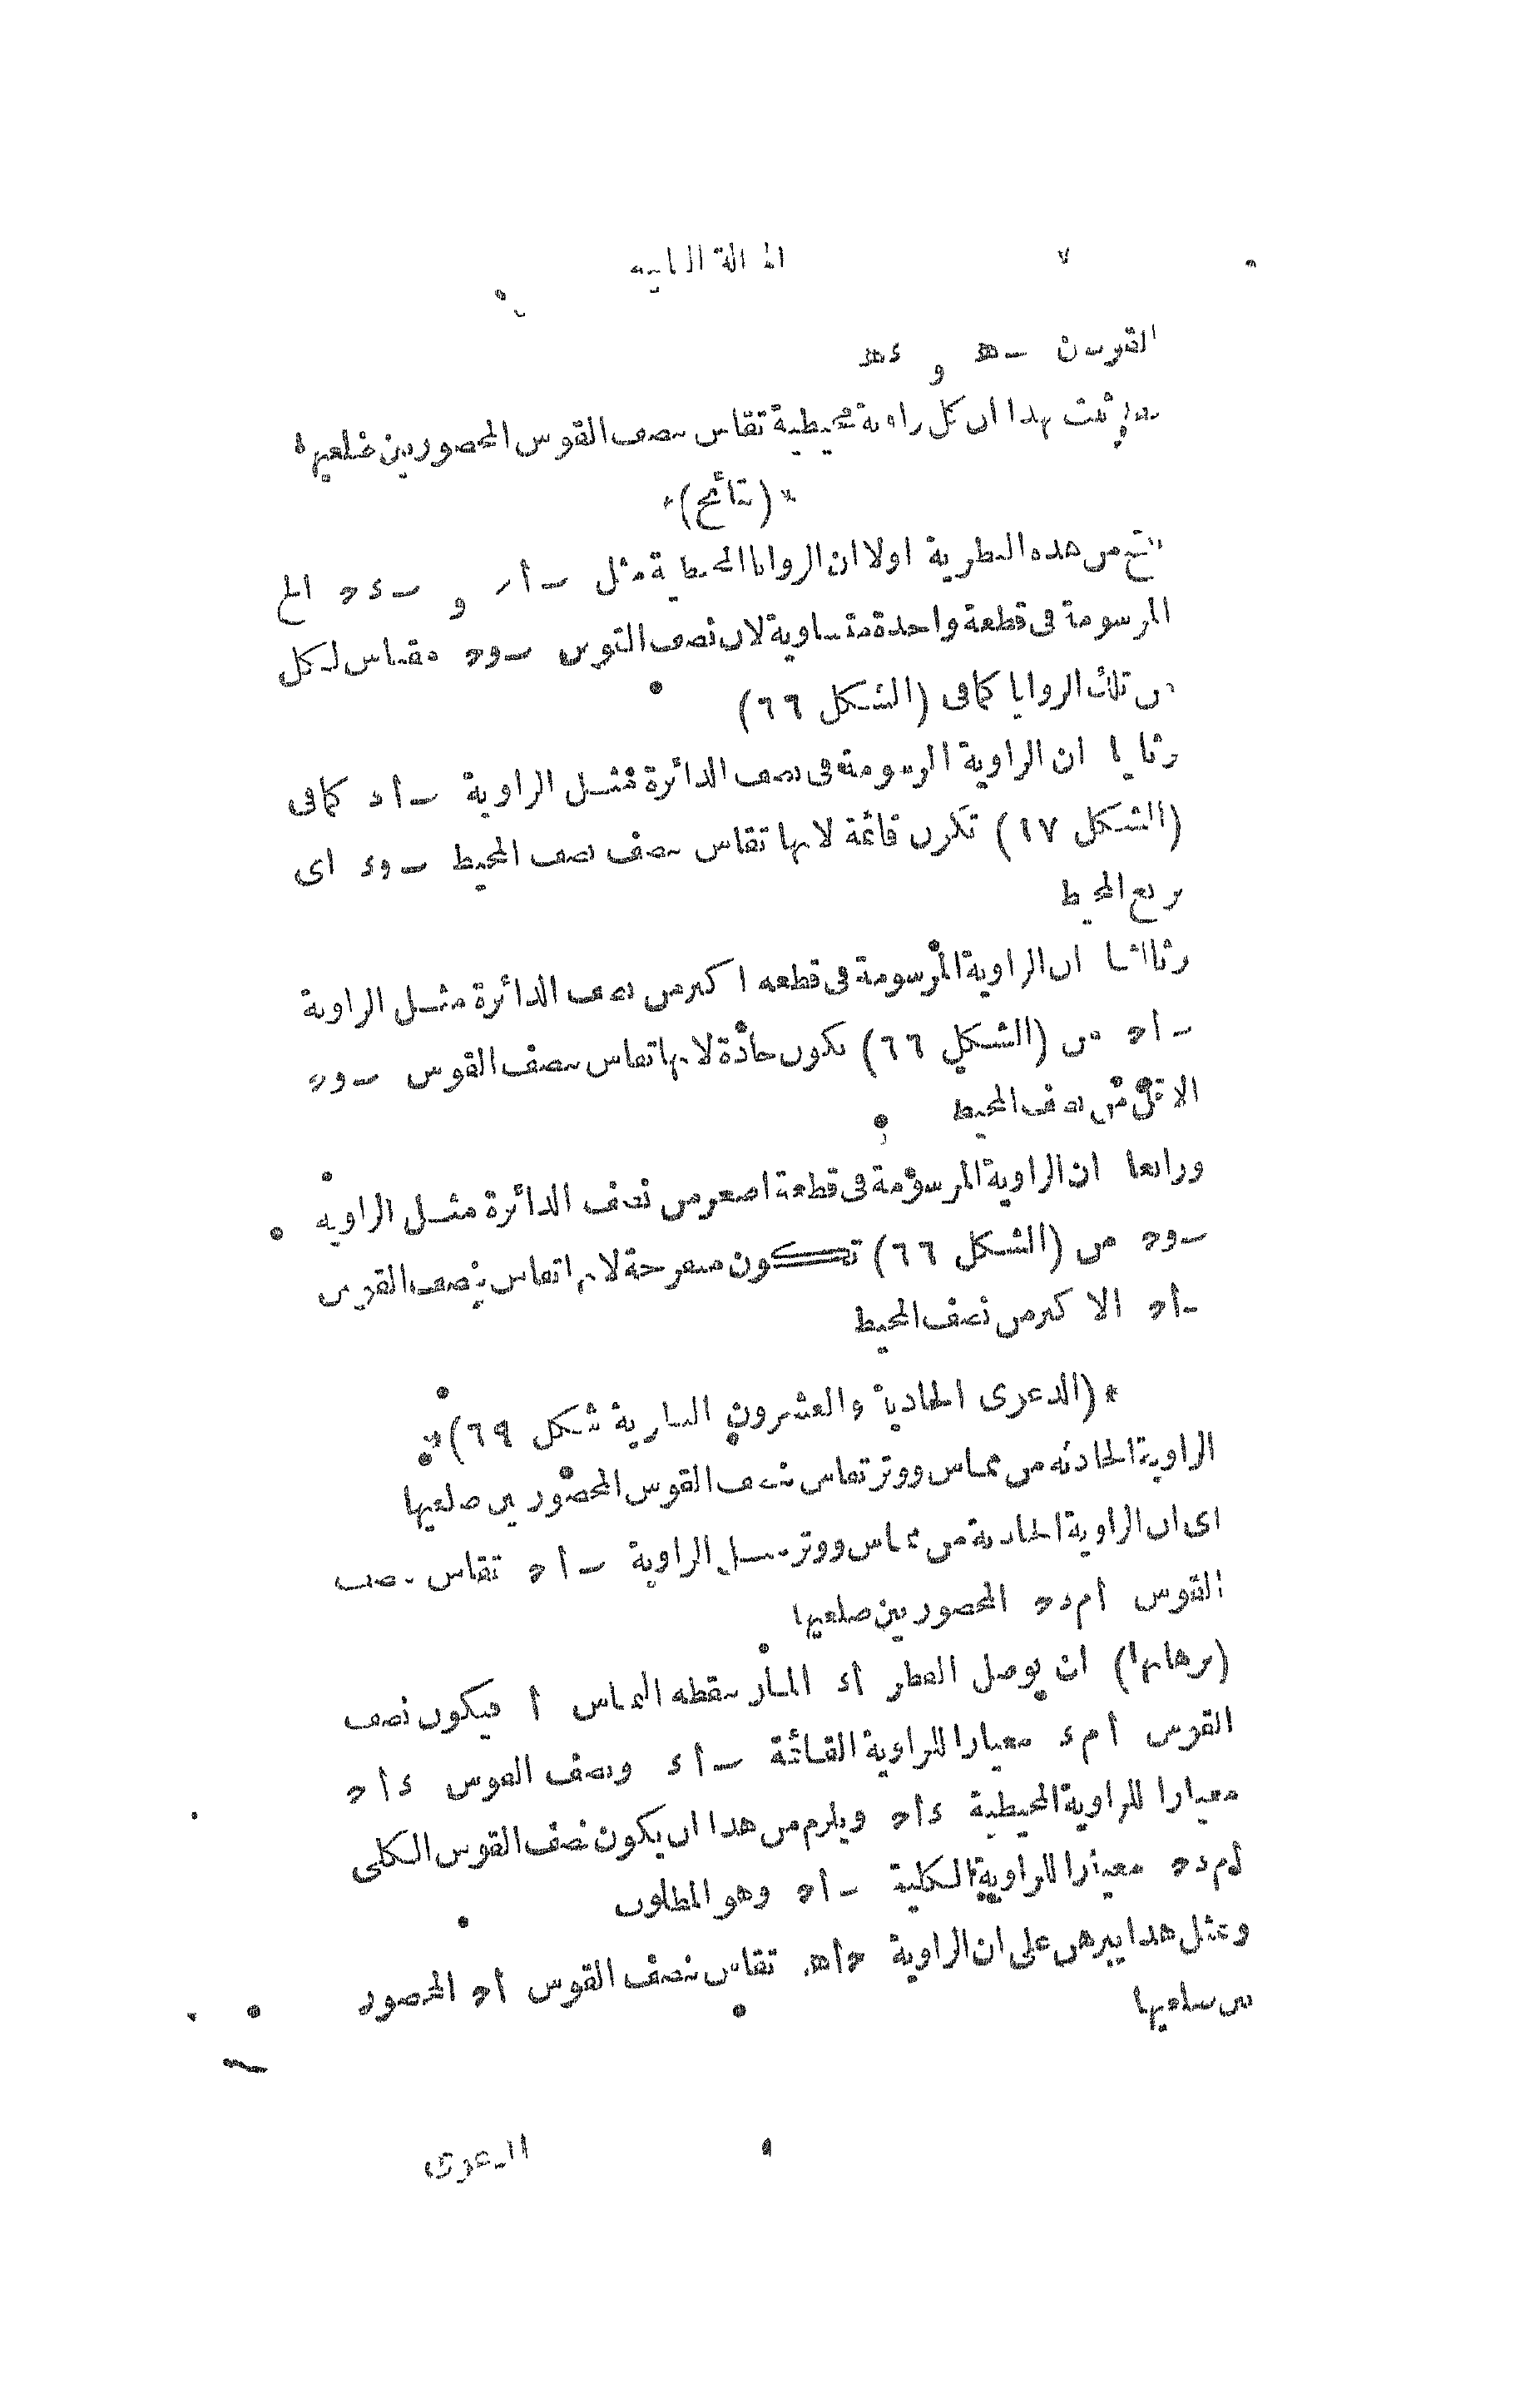 المقالة الثانية
القوسين ـه و ءه
فيثبت بهذا ان كل زاوية محيطية تقاس بنصف القوس المحصور بين ضلعيها
(نتائج)
ينتج من هذه النظرية اولا ان الزوايا المحيطية مثل ـأ و ـءد الخ
المرسومة فى قطعة واحدة متساوية لان نصف القوس ـود مقياس لكل
من تلك الزوايا كما فى (الشكل ٦٦)
وثانيا ان الزاوية المرسومة فى نصف الدائرة مثل الزاوية ـأد كما فى
(الشكل ٦٧) تكون قائمة لانها تقاس بنصف نصف المحيط ـوء اى
بربع المحيط
وثالثا ان الزاوية المرسومة فى قطعة اكبر من نصف الدائرة مثل الزاوية
ـأد من (الشكل ٦٦) تكون حادة لانها تقاس بنصف القوس ـود
الاقل من نصف المحيط
ورابعا ان الزاوية المرسومة فى قطعة اصغر من نصف الدائرة مثل الزاوية
ـود من (الشكل ٦٦) تكون منفرجة لانها تقاس بنصف القوس
ـأد الاكبر من نصف المحيط
*(الدعوى الحادية والعشرون النظرية شكل ٦٩)*
الزاوية الحادثة من مماس ووتر تقاس بنصف القوس المحصور بين ضلعيها
اى ان الزاوية الحادثة من مماس ووتر مثل الزاوية ـأد تقاس بنصف
القوس أمءد المحصور بين ضلعيها
(برهانها) ان يوصل القطر أء المار بنقطة التماس أ فيكون نصف
القوس أمء معيارا للزاوية القائمة ـأء ونصف القوس ءأد
معيارا للزاوية المحيطية ءأد ويلزم من هذا ان يكون نصف القوس الكلى
أمءد معيارا للزاوية الكلية ـأد وهو المطلوب
وبمثل هذا يبرهن على ان الزاوية دأه تقاس بنصف القوس أد المحصور
بين ضلعيها
الدعوى